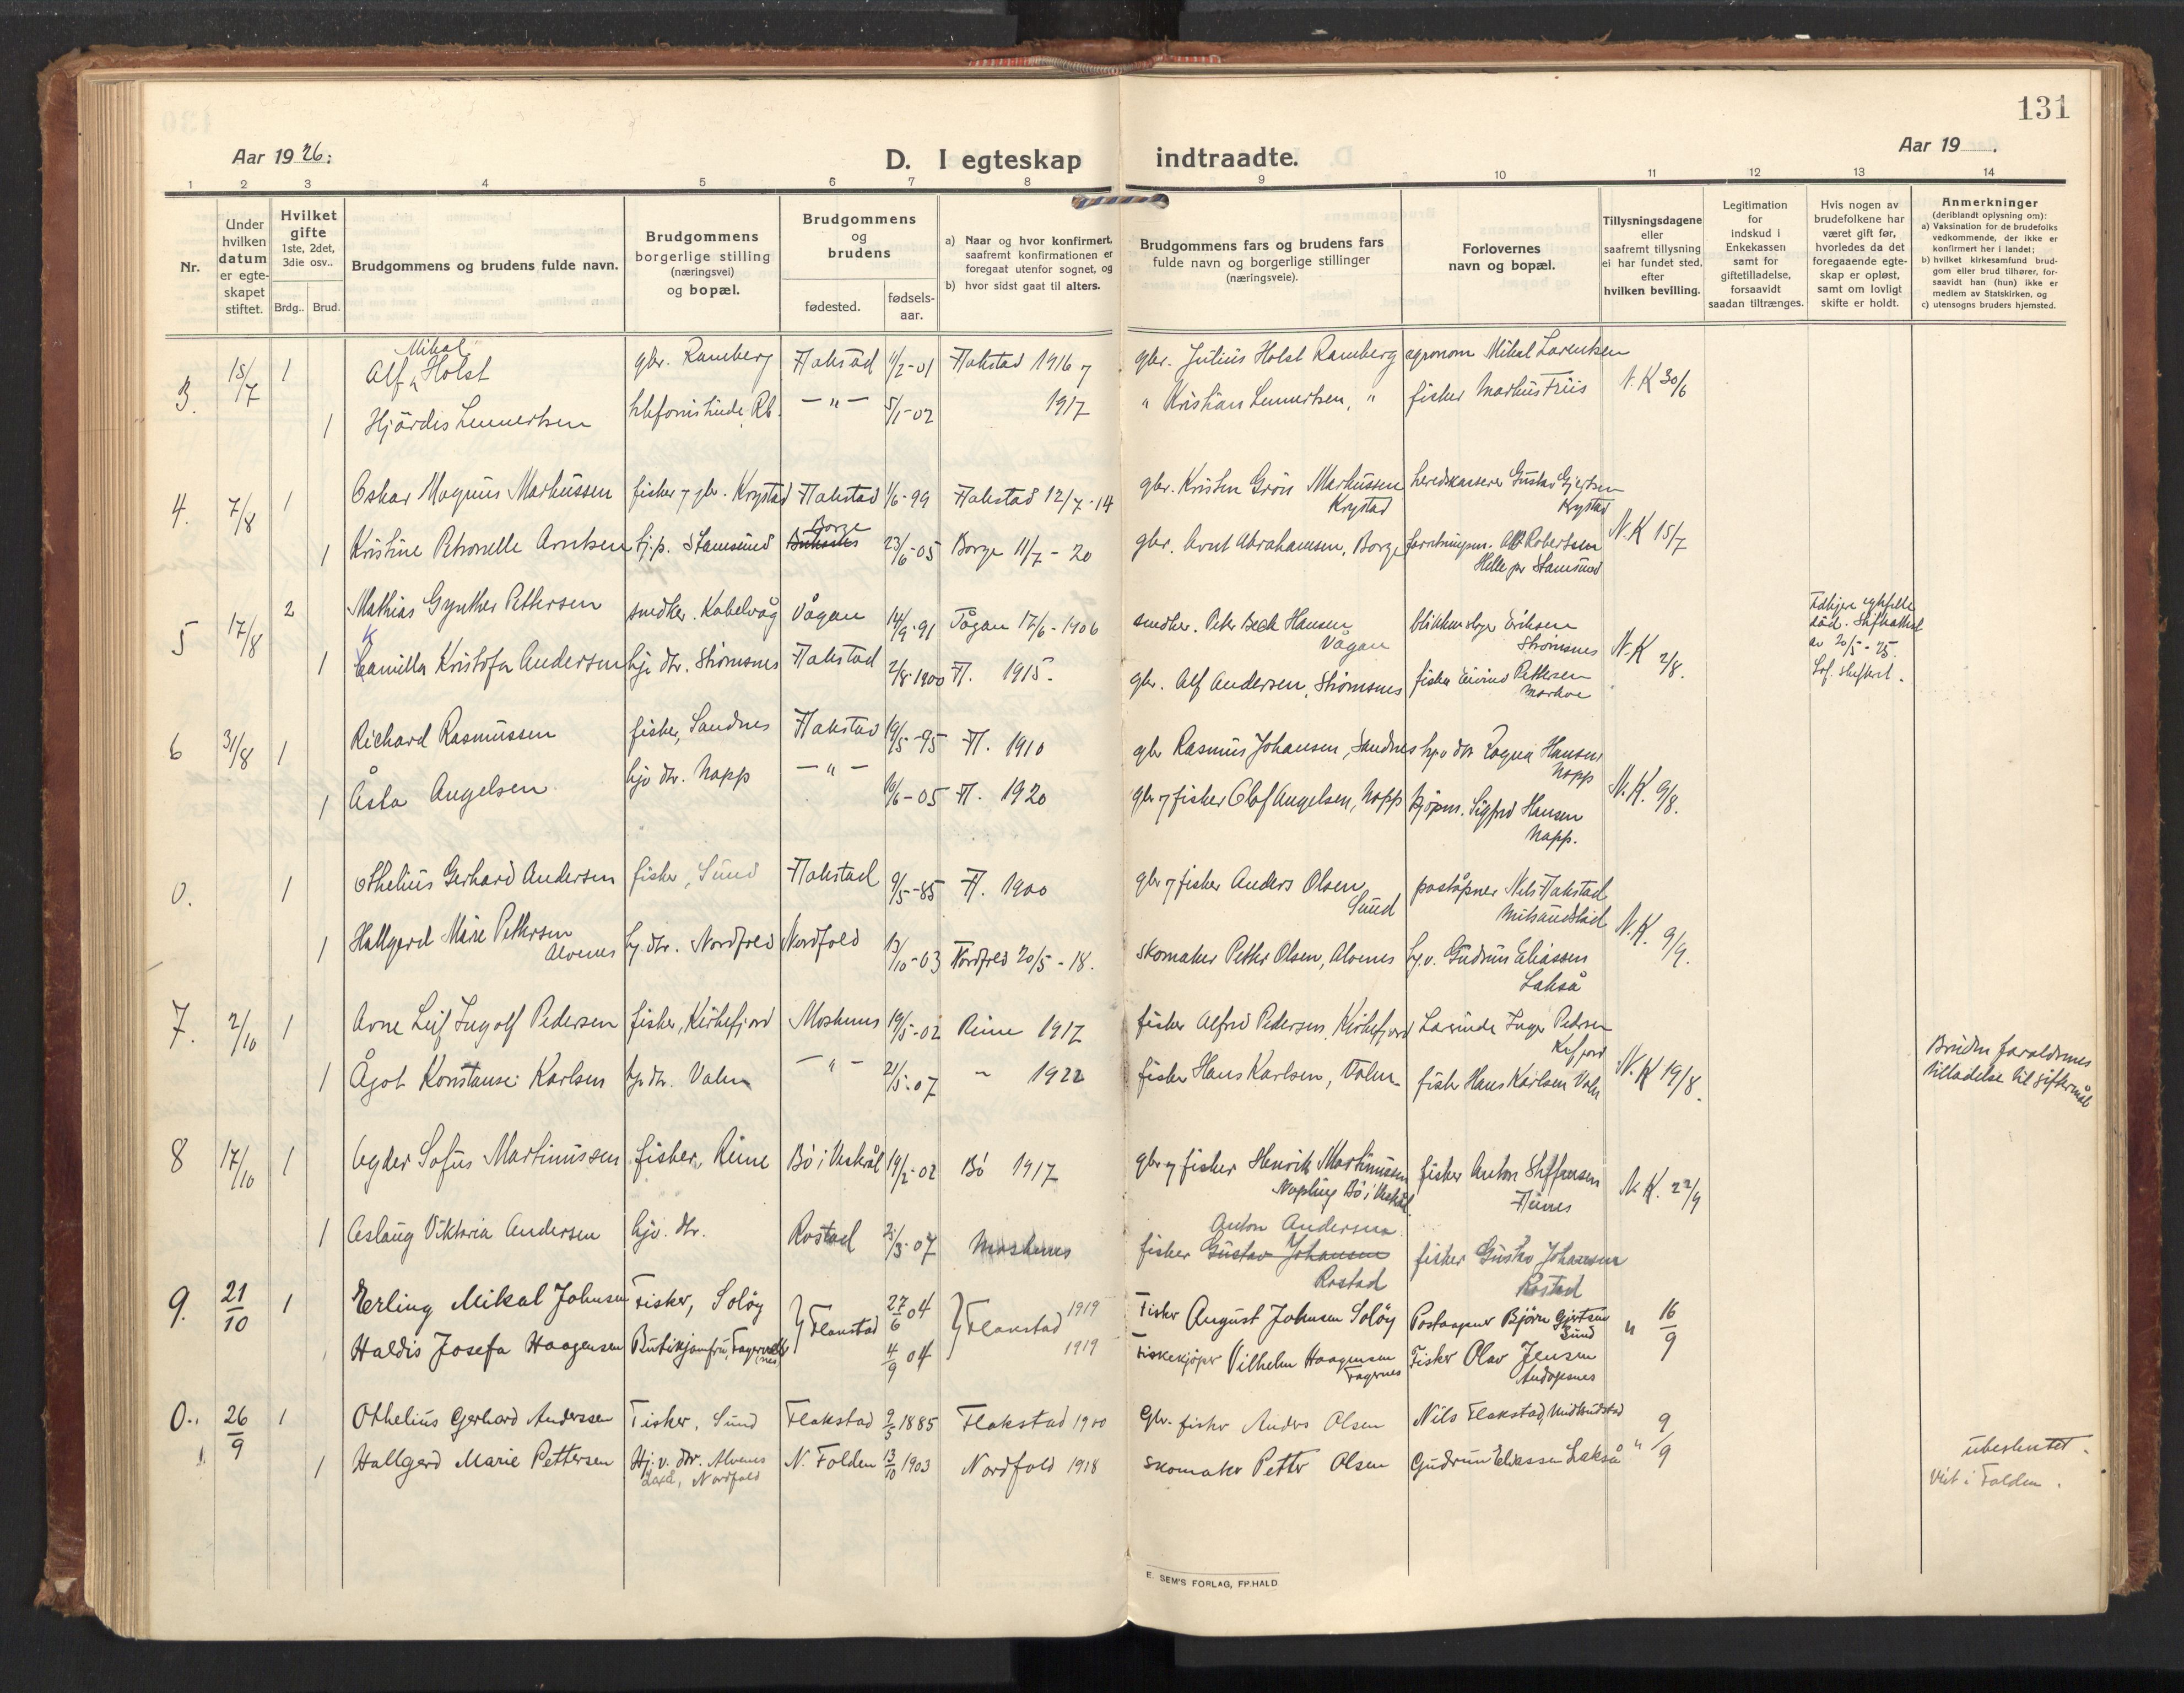 131
Aar 1926:
D. I egteskap indtraadte.
Aar 19 .
1 2 3 4 5 6 7 8 9 10 11 12 13 14
Nr.
Under hvilken datum er egteskapet stiftet.
Hvilket gifte 1ste, 2det, 3die osv..
Brdg.. Brud.
Brudgommens og brudens fulde navn.
Brudgommens borgerlige stilling (næringsvei) og bopæl.
Brudgommens og brudens
fødested.
fødsels-aar.
a) Naar og hvor konfirmert, saafremt konfirmationen er foregaat utenfor sognet, og
b) hvor sidst gaat til alters.
Brudgommens fars og brudens fars fulde navn og borgerlige stillinger (næringsveie).
Forlovernes navn og bopæl.
Tillysningsdagene eller saafremt tillysning ei har fundet sted, efter hvilken bevilling.
Legitimation for indskud i Enkekassen samt for giftetilladelse, forsaavidt saadan tiltrænges.
Hvis nogen av brudefolkene har været gift før, hvorledes da det foregaaende egteskap er opløst, samt om lovligt skifte er holdt.
Anmerkninger (deriblandt oplysning om):
a) Vaksination for de brudefolks vedkommende, der ikke er konfirmert her i landet;
b) hvilket kirkesamfund brudgom eller brud tilhører, forsaavidt han (hun) ikke er medlem av Statskirken, og
c) utensogns bruders hjemsted.
3. 15/7 1 Alf Mikal Holst gbr. Ramberg Flakstad 11/2-01 Flakstad 1916 gbr. Julius Holst Ramberg agronom Mikal Lorentsen N.K 30/6
1 Hjördis Lennertsen telefonistinde Rb. — " — 5/1-02 1917 " Kristian Lennertsen, " fisker Markus Friis
4. 7/8 1 Oskar Magnus Markussen fisker & gbr. Krystad Flakstad 1/6-99 Flakstad 12/7-14 gbr. Kristen Grön Markussen Krystad herredskasserer Gustav Gjertsen Krystad N.K 15/7
1 Kristine Petronelle Arntsen hj.p. Stamsund Borge 23/6-05 Borge 11/7-20 gbr. Arnt Abrahamsen, Borge forretningsm. Alb Robertsen Helle pr Stamsund
5 17/8 2 Mathias Gynther Pettersen snedker. Kabelvåg Vågan 14/9-91 Vågan 17/6-1906 snedker. Peter Beck Hansen Vågan blikkenslager Eriksen Strömsnes N.K 2/8.
1 Kamilla Kristofa Andersen hjv dtr. Strömsnes Flakstad 2/8-1900 Fl. 1915. gbr. Alf Andersen, Strömsnes fisker Eivind Pettersen
Tidligere egtefelle död. Skifteattest av 20/5-25.
6 31/8 1 Richard Rasmussen fisker, Sandnes Flakstad 19/5-95 Fl. 1910 gbr Rasmus Johansen, Sandnes hjv dtr Ragna Hansen Napp N.K. 9/8.
1 Åsta Angelsen hjv dtr. Napp — " — 16/6-05 Fl. 1920 gbr & fisker Olaf Angelsen, Napp kjöpm. Sigfred Hansen Napp.
0. 1 Othelius Gerhard Andersen fisker, Sund Flakstad 9/5-85 Fl. 1900 gbr & fisker Anders Olsen Sund poståpner Nils Flakstad N.K. 9/9.
1 Hallgerd Marie Pettersen Alvenes hj. dtr. Nordfold Nordfold 13/10-03 Nordfold 20/5-18. skomaker Petter Olsen, Alvenes hj.v. Gudrun Eliassen Lakså
7. 2/10 1 Arne Leif Ingolf Pedersen fisker, Kirkefjord Moskenes 19/5-02 Reine 1917 fisker Alfred Pedersen, Kirkefjord Lærerinde Inger Pedersen Kirfjord N.K 19/8.
1 Ågot Konstanse Karlsen hjv dtr. Valen — " — 21/5-07 " 1922 fisker Hans Karlsen, Valen fisker Hans Karlsen Valen
Bruden foreldrenes tilladelse til giftermål
8 17/10 1 Agder Sofus Martinussen fisker, Reine Bö i Vesterål 19/2-02 Bö 1917 gbr & fisker Henrik Martinussen Bö i Vesterål fisker Anton Steffensen N.K. 22/9
1 Aslaug Viktoria Andersen hjv. dtr. Rostad 21/3-07 Moskenes fisker Gustav Johansen Anton Andersen Rostad fisker Gustav Johansen Rostad
9. 21/10 1 Erling Mikal Johnsen Fisker, Solöy } Flakstad 27/6 04 } Flakstad 1919 Fisker August Johnsen Solöy Postaapner Björn Gjertsen Sund " 16/9
Haldis Josefa Haagensen Butikjomfru, Fagernes 4/9 04 1919 Fiskekjöper Vilhelm Haagensen Fagernes Fisker Olav Jensen Andopsnes
0.. 26/9 1 Othelius Gerhard Anderssen Fisker, Sund Flakstad 9/5 1885 Flakstad 1900 Gbr. fisker Anders Olsen Nils Flakstad, 9/9
1 Hallgerd Marie Pettersen Hj.v. dtr. Alvenes Laxå, Nordfold N. Folden 13/10 1903 Nordfold 1918 Skomaker Petter Olsen Gudrun Eliassen Lakså "
Viet i Folden.
E. SEM'S FORLAG, FR.HALD